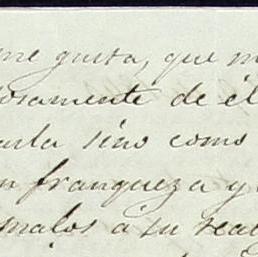 me gusta, que m
osamente de él
arla sino como
n franqueza y
malos a su rea